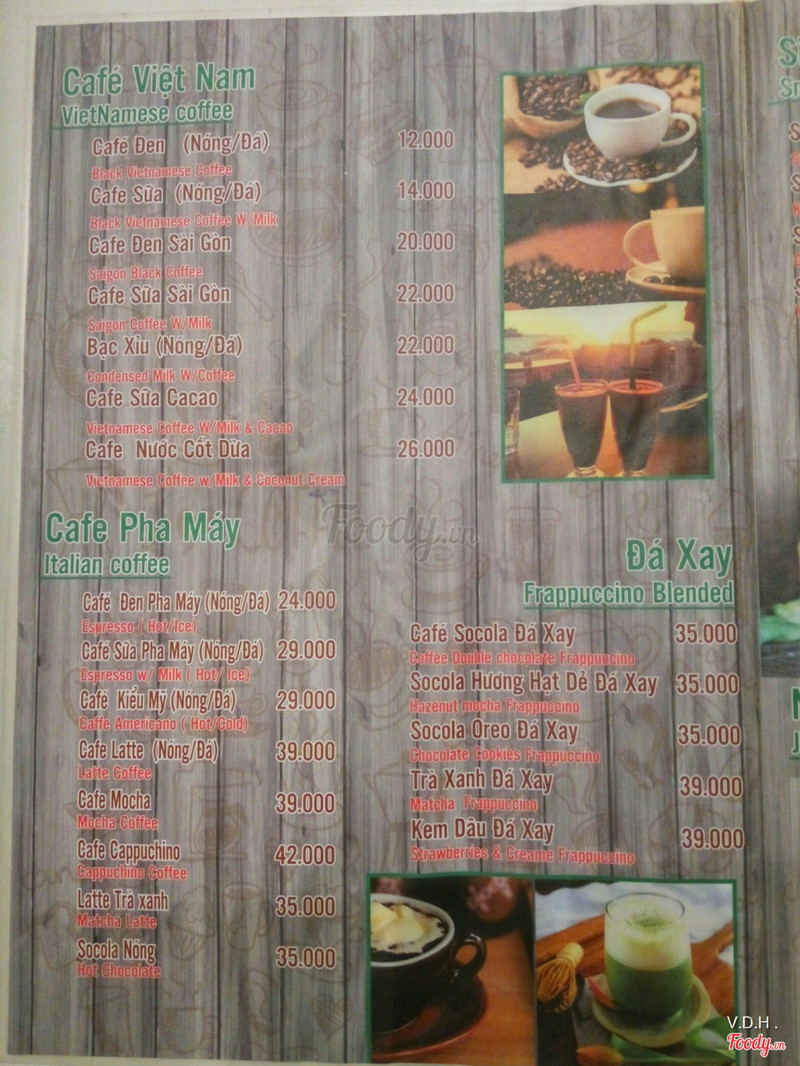 Café Việt Nam
VietNamese coffee
Café Đen (Nóng/Đá) 12.000
Black Vietnamese Coffee
Cafe Sữa (Nóng/Đá) 14.000
Black Vietnamese Coffee W/Milk
Cafe Đen Sài Gòn 20.000
Saigon Black Coffee
Cafe Sữa Sài Gòn 22.000
Saigon Coffee W/Milk
Bạc Xỉu (Nóng/Đá) 22.000
Condensed Milk W/Coffee
Cafe Sữa Cacao 24.000
Vietnamese Coffee W/Milk & Cacao
Cafe Nước Cốt Dừa 26.000
Vietnamese Coffee w/Milk & Coconut Cream
Foody.vn
Cafe Pha Máy
Italian coffee
Café Đen Pha Máy (Nóng/Đá) 24.000
Espresso ( Hot/Ice)
Café Sữa Pha Máy (Nóng/Đá) 29.000
Espresso w/ Milk ( Hot/ Ice)
Café Kiểu Mỹ (Nóng/Đá) 29.000
Caffe Americano ( Hot/Cold)
Cafe Latte (Nóng/Đá) 39.000
Latte Coffee
Cafe Mocha 39.000
Mocha Coffee
Cafe Cappuchino 42.000
Cappuchino Coffee
Latte Trà xanh 35.000
Matcha Latte
Socola Nóng 35.000
Hot Chocolate
Đá Xay
Frappuccino Blended
Café Socola Đá Xay 35.000
Coffee Double chocolate Frappuccino
Socola Hương Hạt Dẻ Đá Xay 35.000
Hazenut mocha Frappuccino
Socola Oreo Đá Xay 35.000
Chocolate Cookies Frappuccino
Trà Xanh Đá Xay 39.000
Matcha Frappuccino
Kem Dâu Đá Xay 39.000
Strawberries & Creame Frappuccino
V.D.H .
Foody.vn